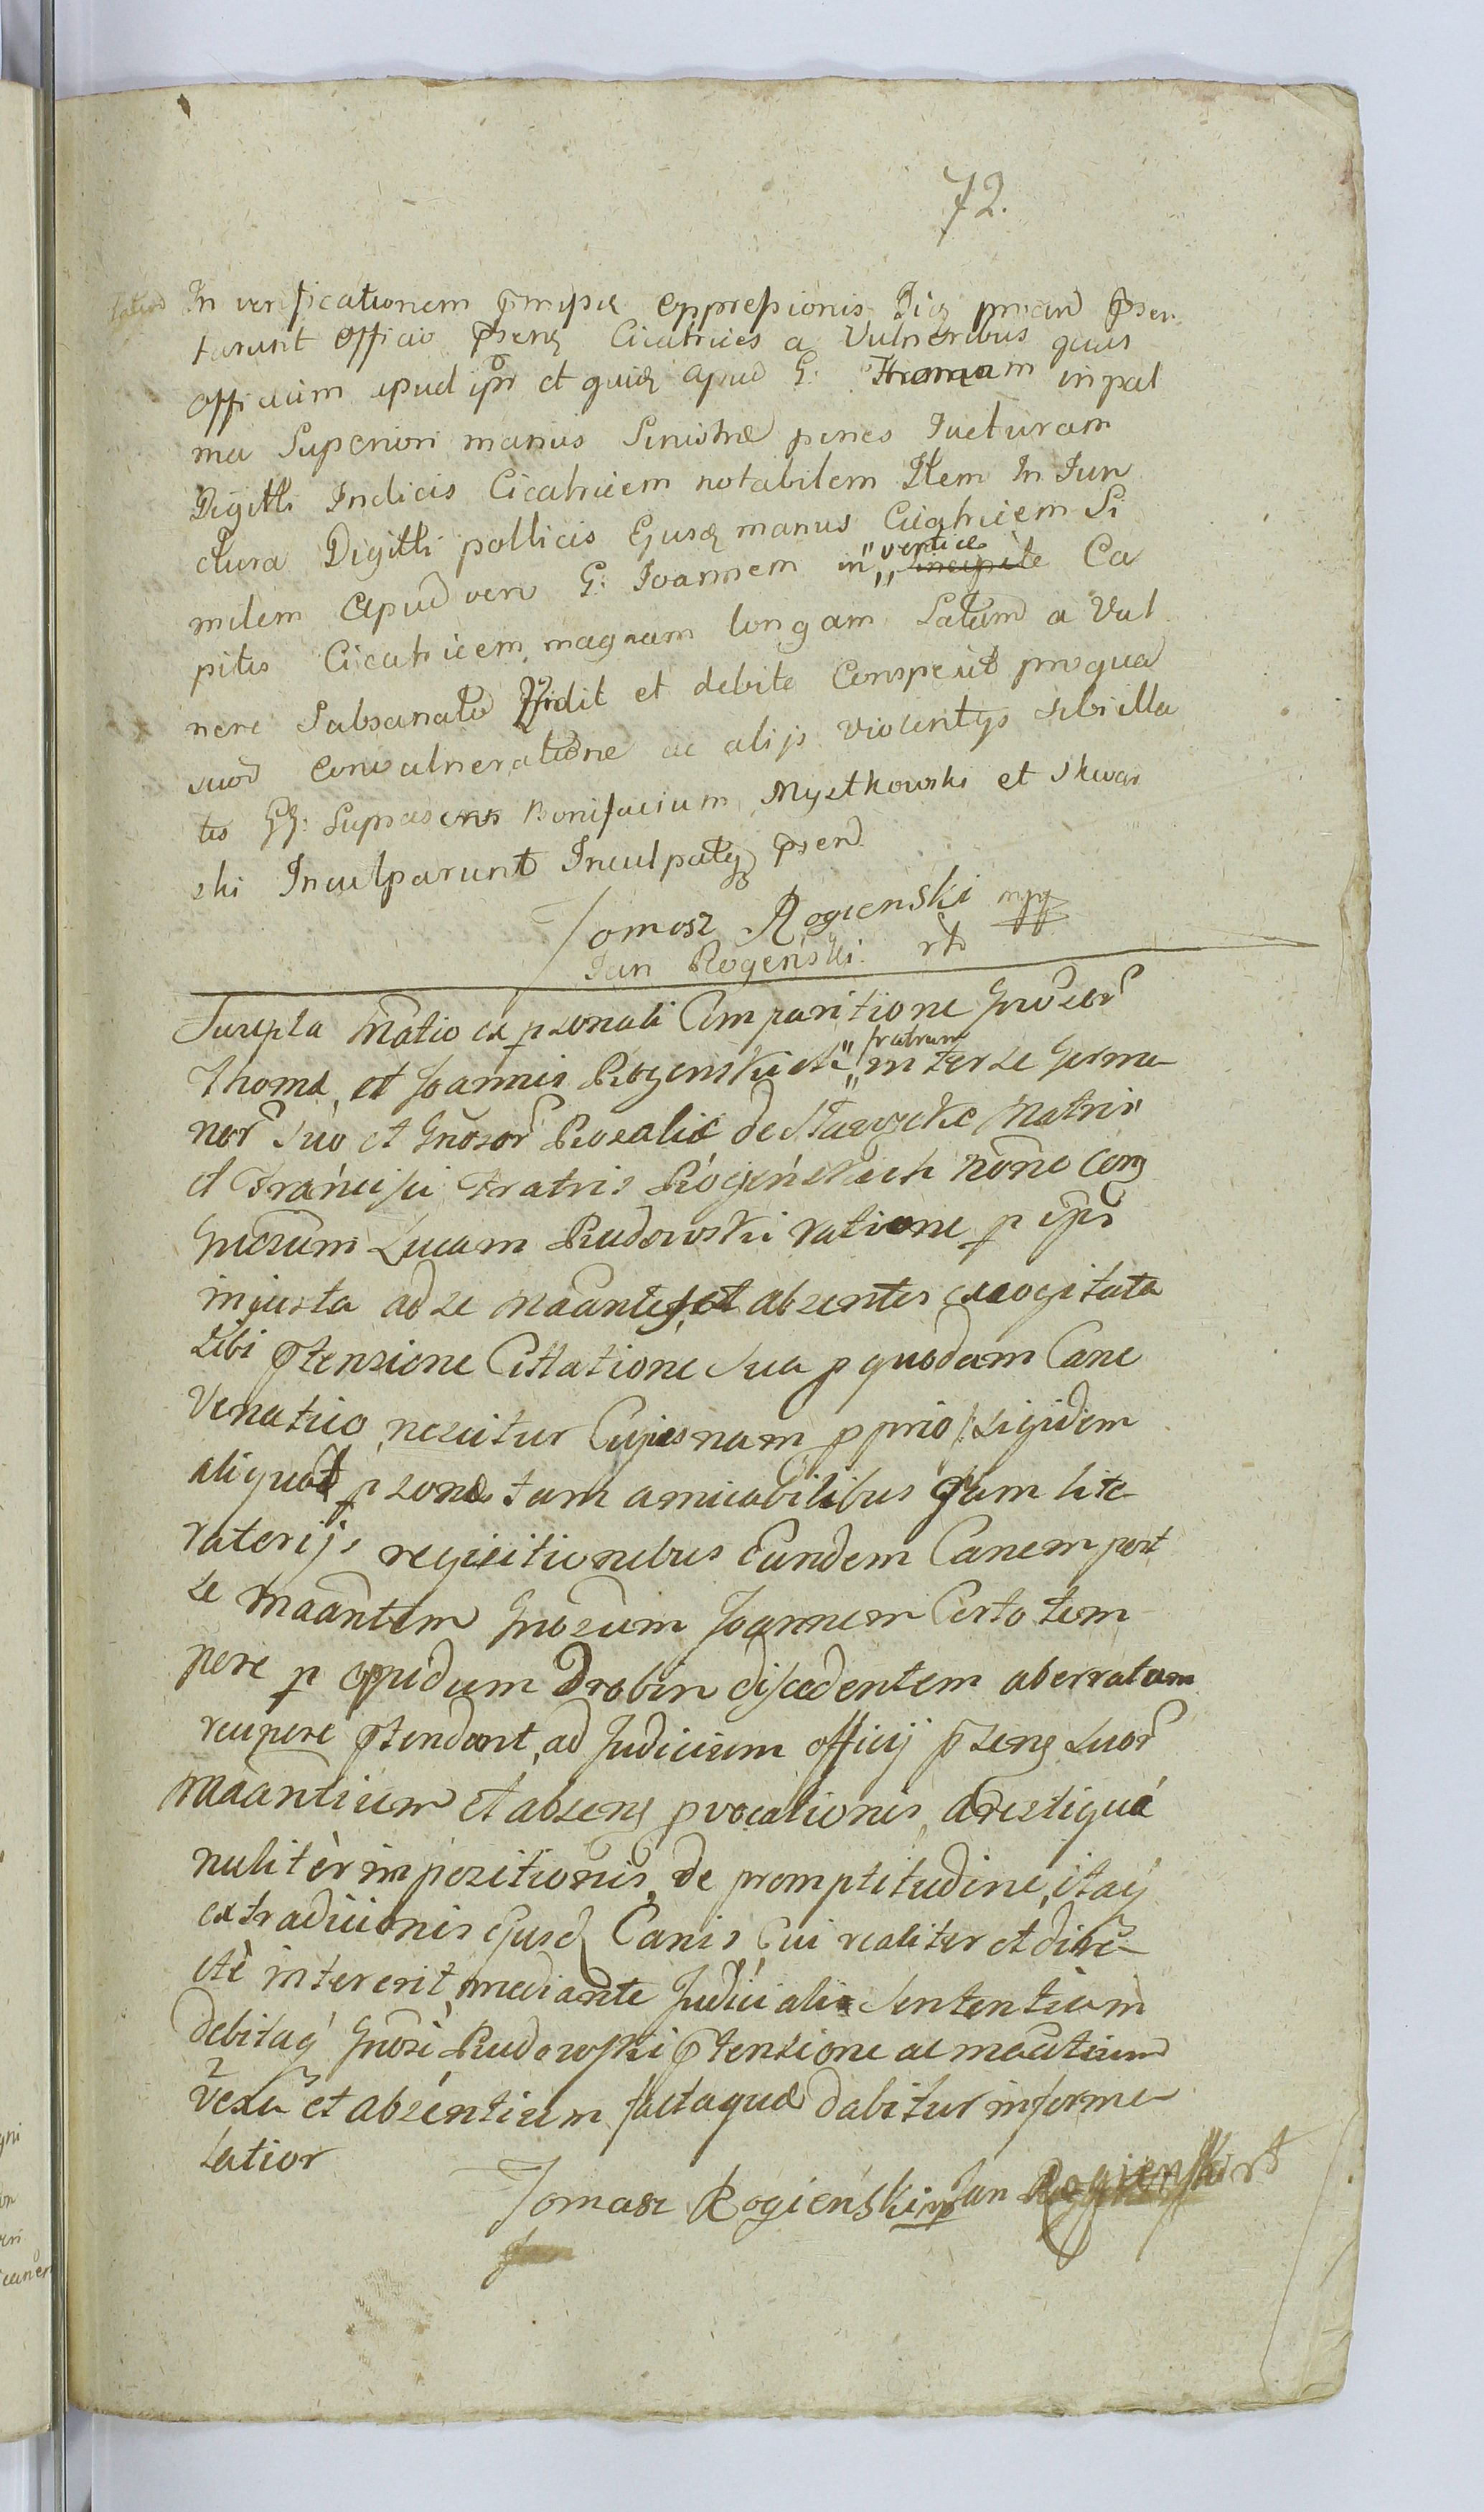 72.
In verificationem pmissa oppressionis Diq
tarunt officio psenq Cicatrices a Vulneribus quas
officium apud ipõr et quidq apud G: Thomam in pal
ma Superiori manus Sinistræ penes Iucturam
Digitti Indicis Cicatricem notabilem Item In Iun
ctura Digitti pollicis Ejusq manus Cicatricem Si
milem Apud vero G: Ioannem in „vertice„ Sincipite Ca
pitis Cicatricem magnam longam Latam a Vul
nere Subsanato Vidit et debite Conspexit pro qua
suod Convulneratione ac alijs violentÿs sibi illa
tis GG: Bonifacium Mystkowski et Skwar
ski Inculparunt Inculpatq psend
Tomasz Rogienski mpp
Jan Rogeński rh
Suscepta Mãtio ex psonali Comparitione Gnõsor
Thomæ et Joannis Rogenskich „fratrum„ inter se Germa
nor Suo et Gnosor Rozaliæ de Matris
et Francisci Fratris Rogeńskich nõne Conq
Gnosum Lucam Rudowski ratione p ipõs
injusta ad se mãantes et absentes excogitata
sibi ptensione Cittatione sua p quodam Cane
Venatico, nescitur Cujusnam pprio siqidem
aliquot psone tam amicabilibus qam lite
ratorijs reqisitionibus Eundem Canem post
se mãantem Gnosum Joannem Certo tem
pore p opidum Drobin discedentem aberratum
recupere ptendant, ad Judicium officij psenq suor
Mãantium et absenq pvocationis, arestiquæ
nulitèr impozitionis, de promptitudine, itaq
extradicionis Ejusq Canis Cui realiter et dire-
ctè intererit, mediante Judiciali Sententiam
debitaq Gnõsi Rudowski ptensione ac mãntium
et absentium factaque dabitur informa-
latior
Tomasz Rogieński mp Jan Rogienski rh